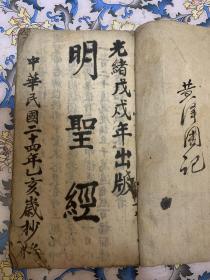 光緒戊戌年出版
明聖經
中華民國二十四年乙亥歲抄
黄澤國記